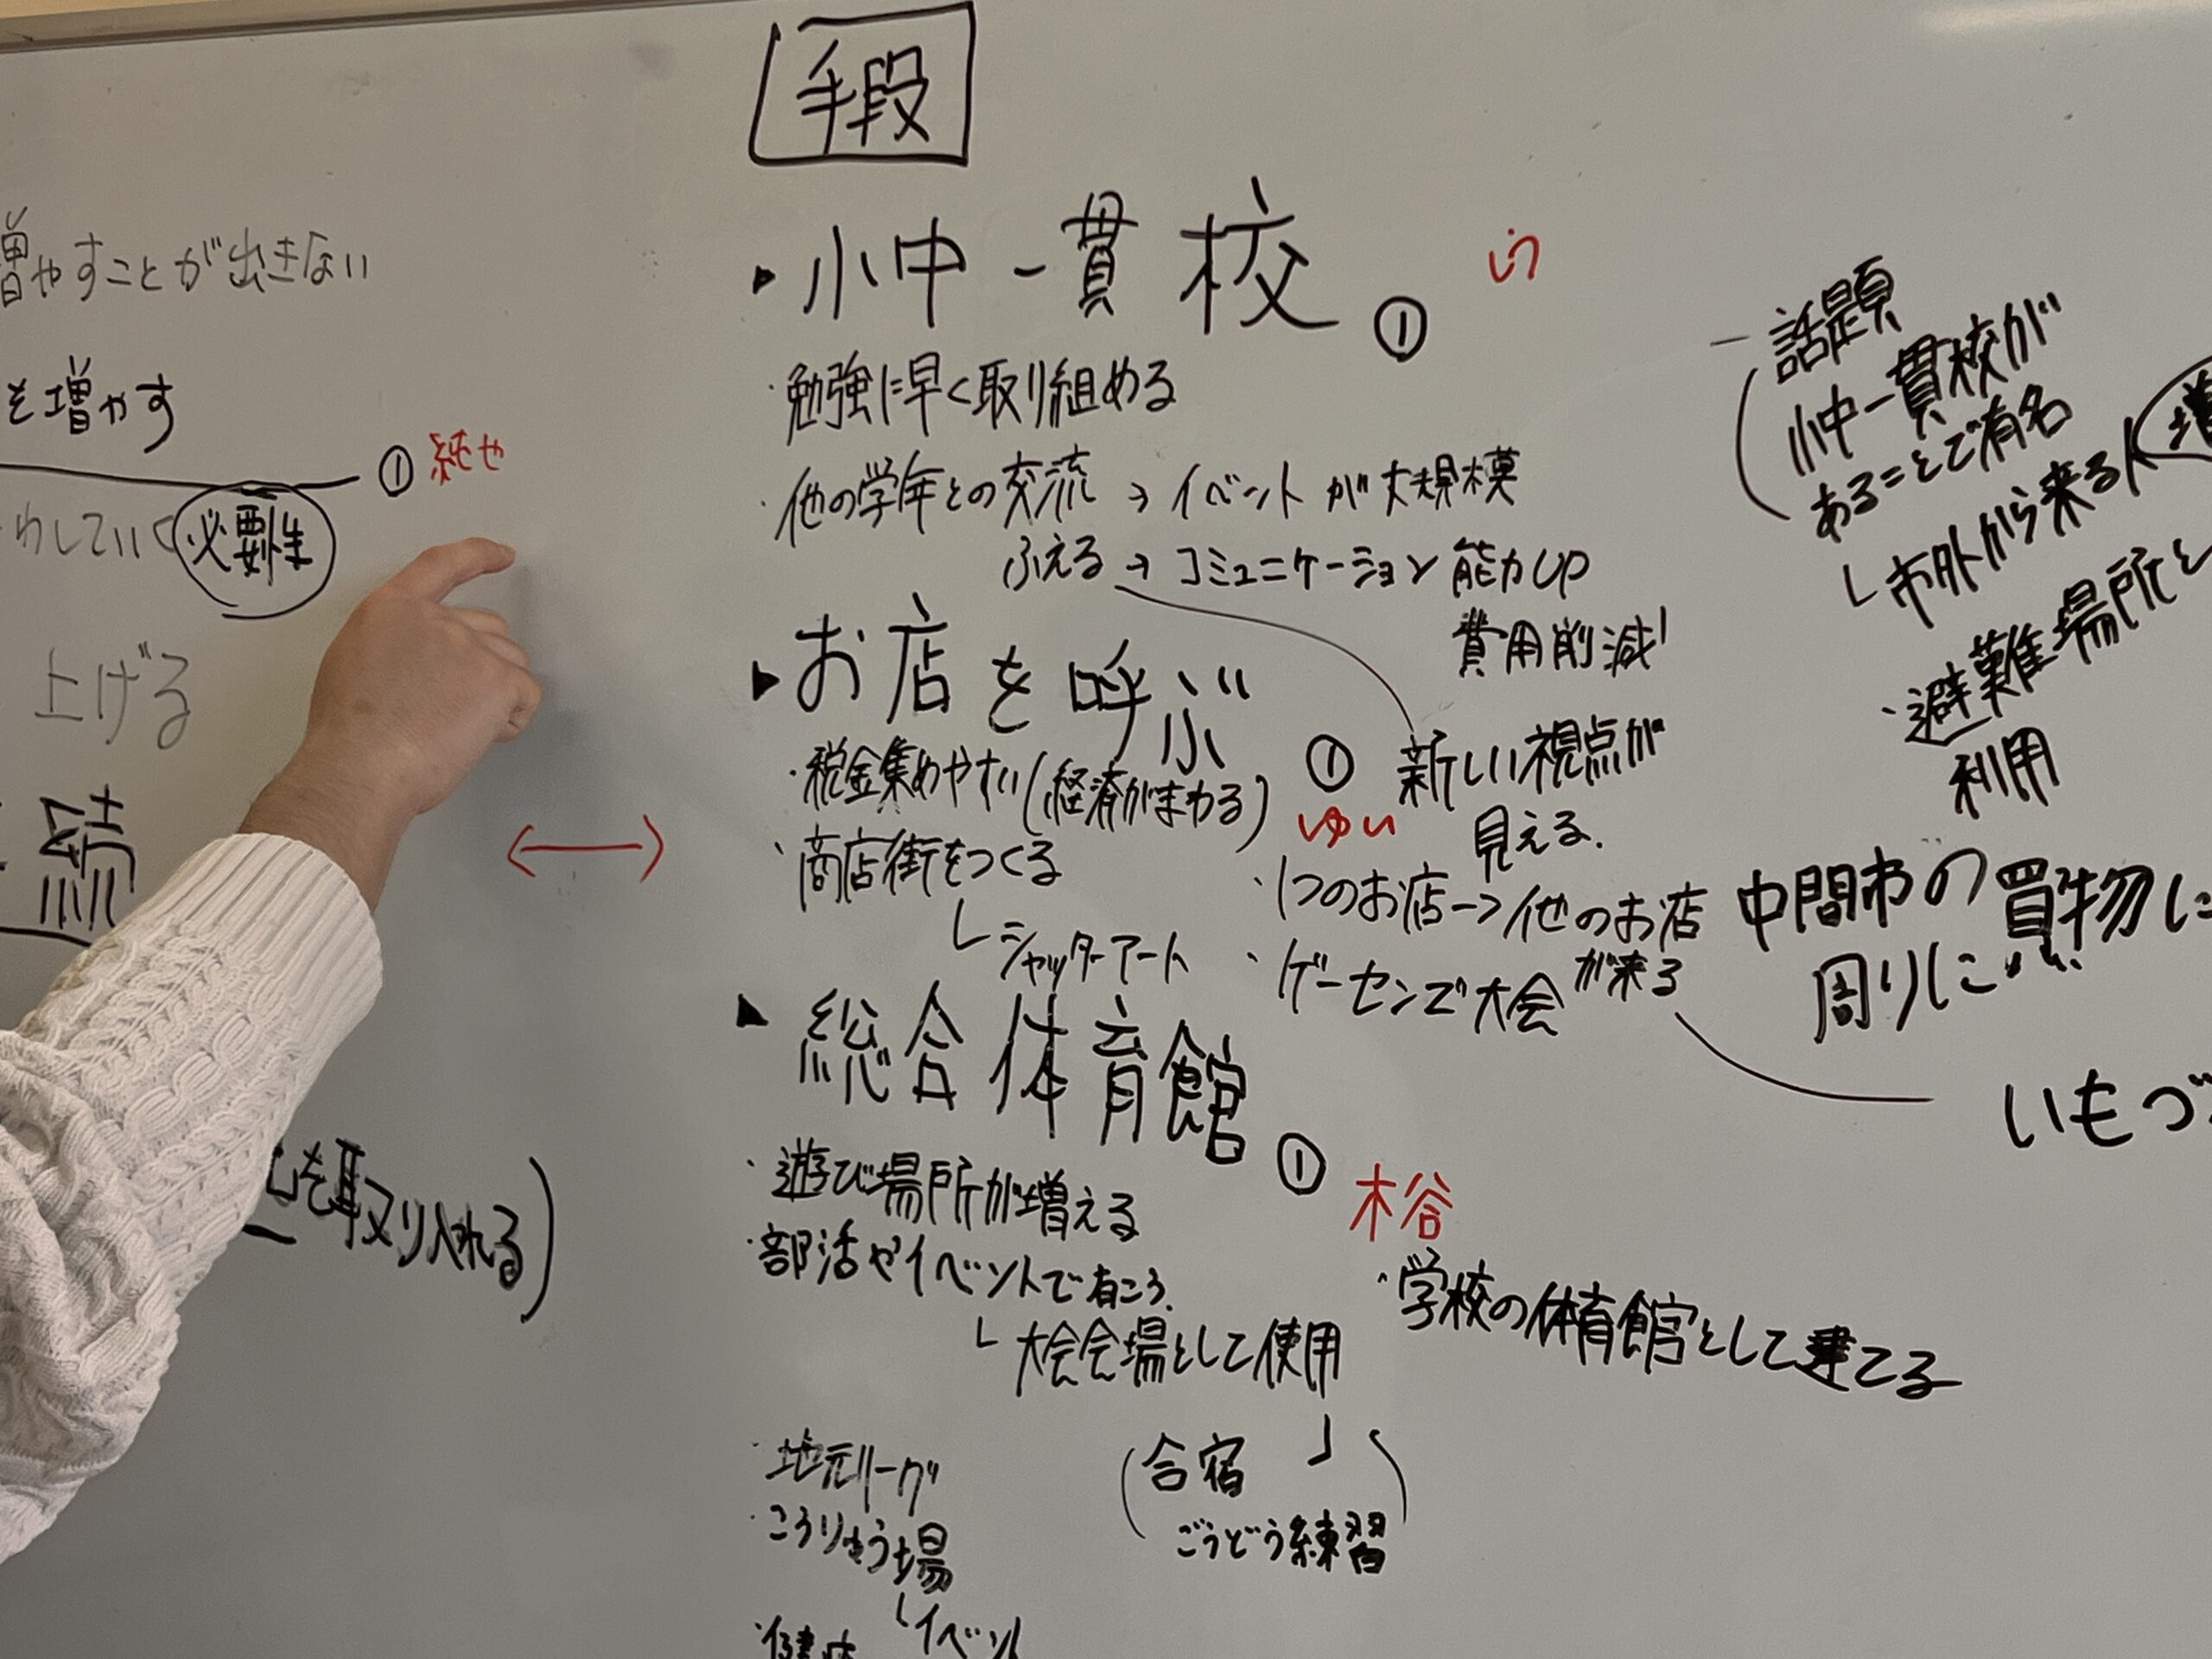 手段
増やすことが出きない
を増やす
① 純也
わしていく 必要性
上げる
続
を取り入れる)
▶小中一貫校 ①
・勉強に早く取り組める
・他の学年との交流 → イベントが大規模
ふえる → コミュニケーション能力UP
費用削減!
新しい視点が
見える.
▶お店を呼ぶ ①
ゆい
・税金集めやすい(経済がまわる)
・商店街をつくる
└シャッターアート
・1つのお店→他のお店
が来る
・ゲーセンで大会
▶総合体育館 ①
木谷
・遊び場所が増える
・部活やイベントで有こう.
└大会会場として使用
・学校の体育館として建てる
(合宿
ごうどう練習)
・地元リーグ
・こうりゅう場
└イベント
ー話題
小中一貫校が
あることで有名
└市外から来る人 増
・避難場所と
利用
中間市の買物に
周りに
いもづ